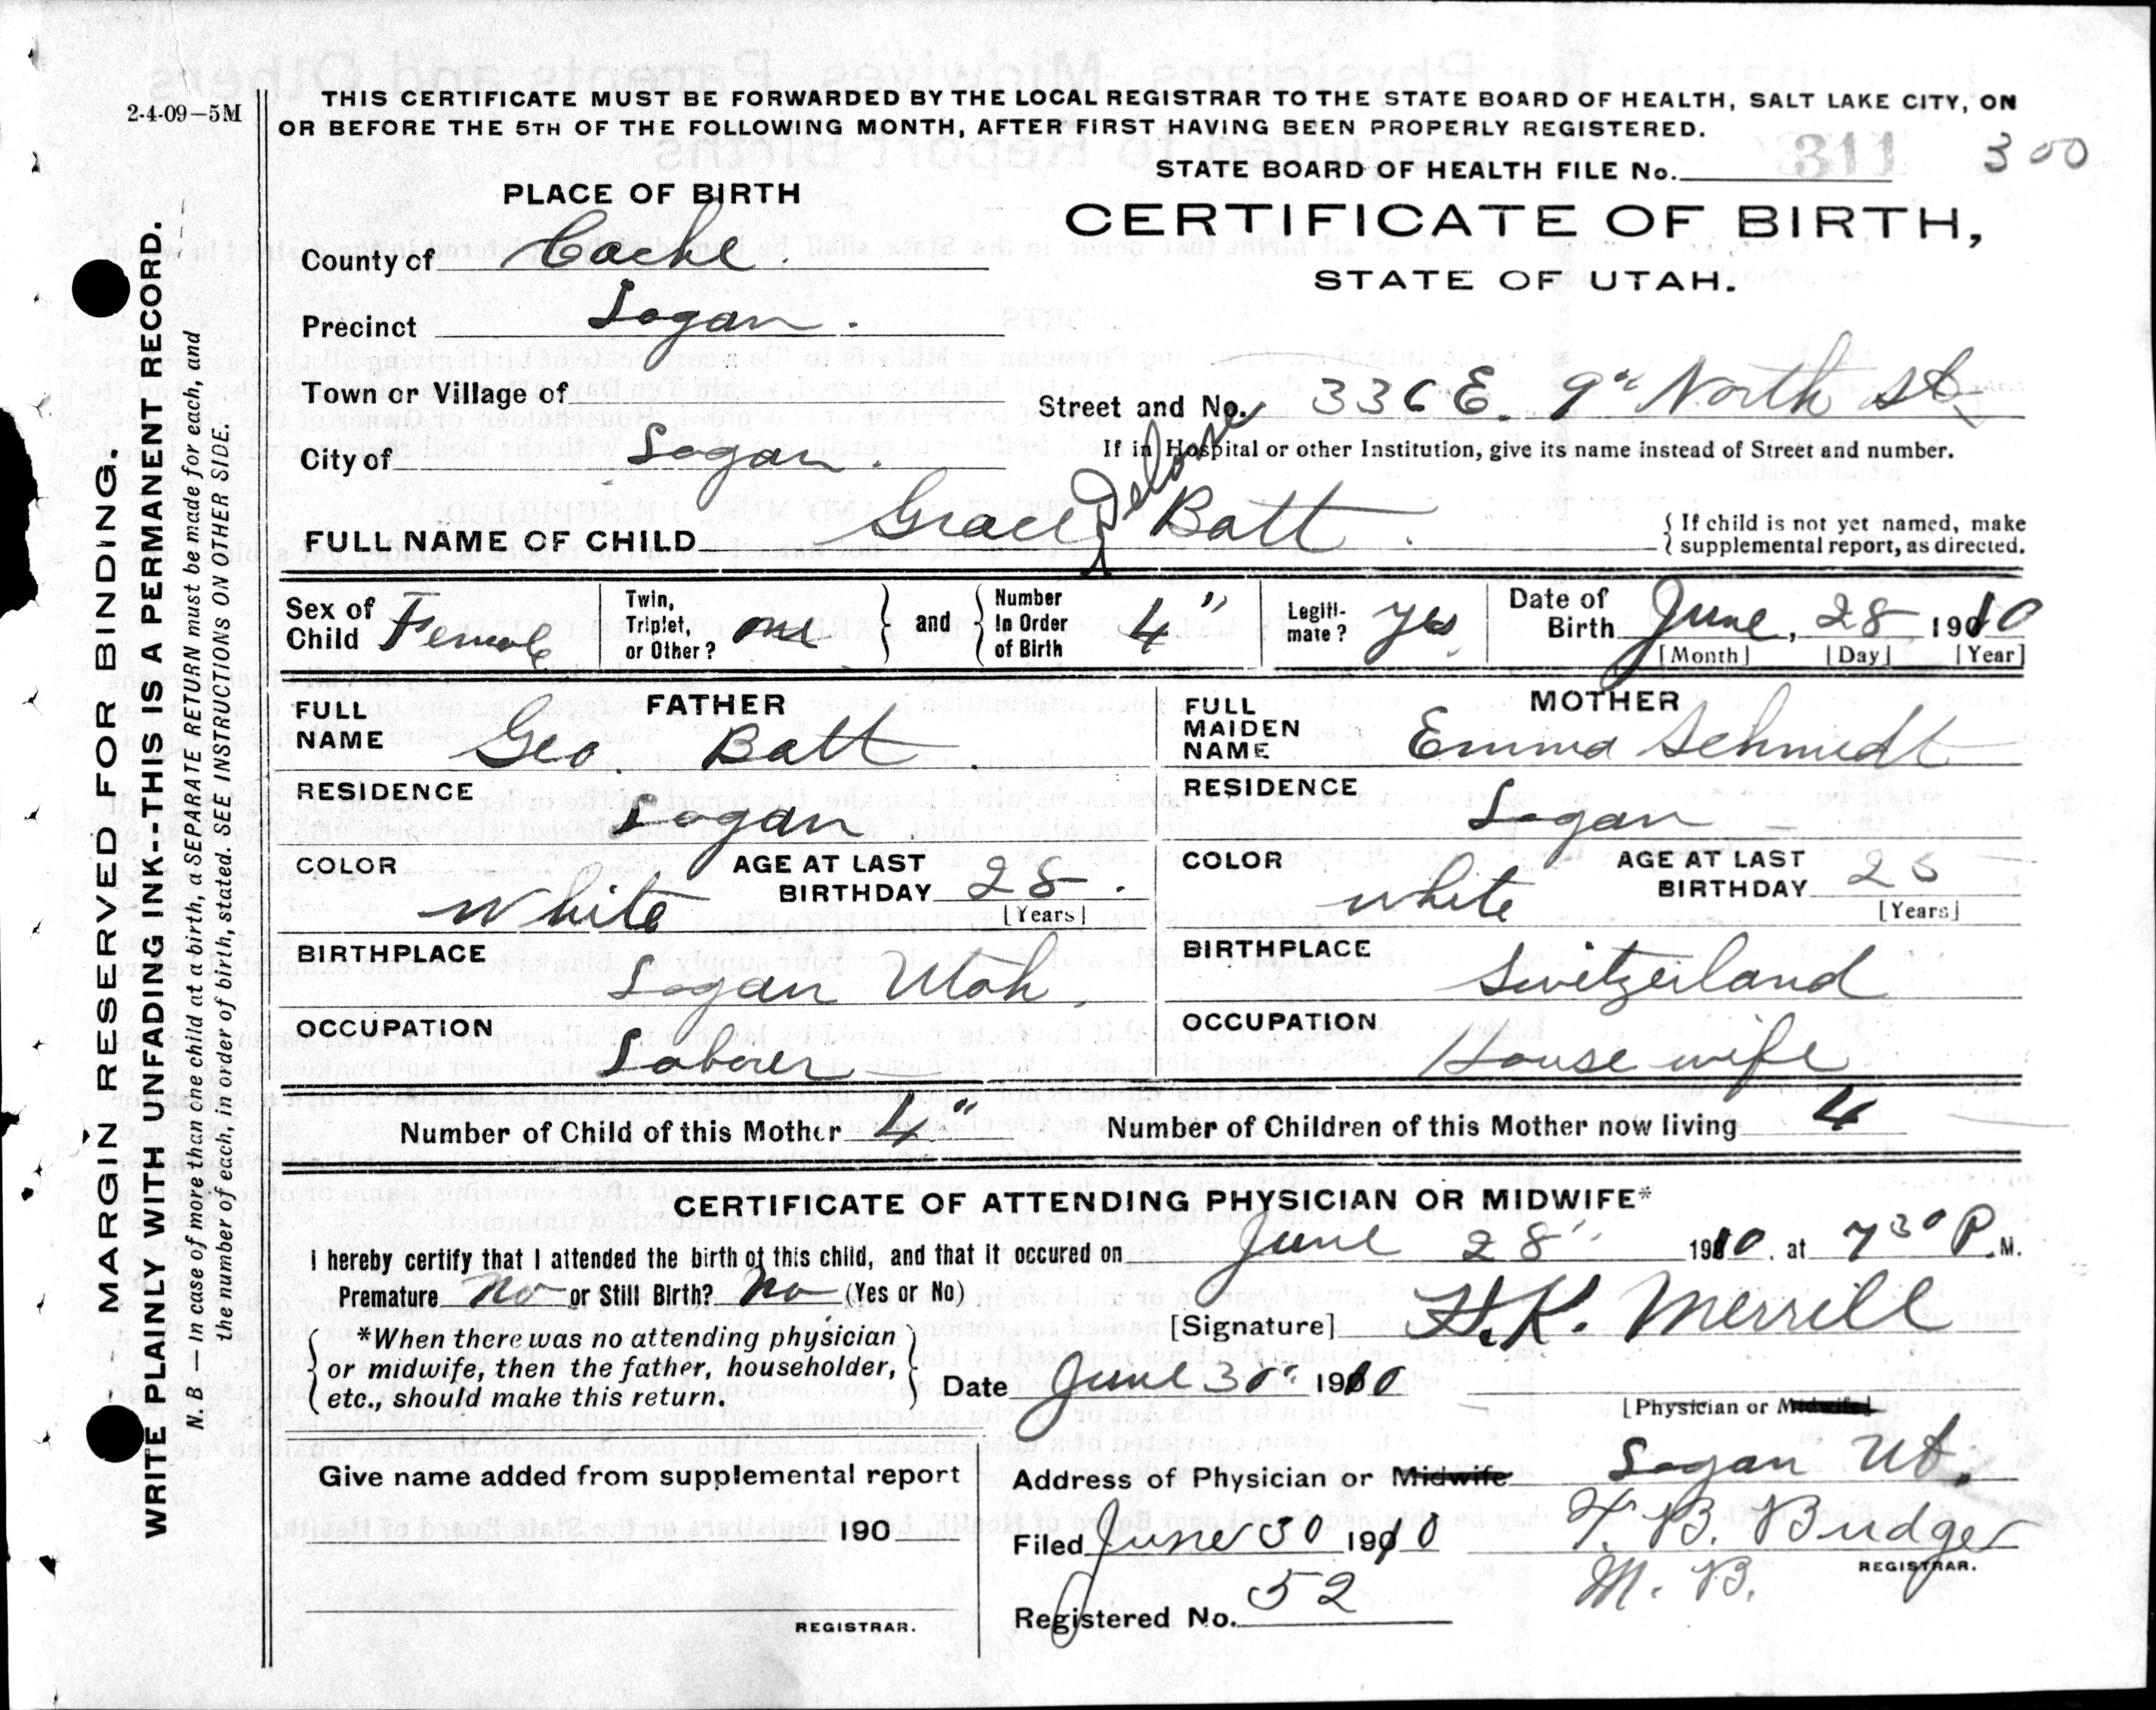 2-4-09-5M
THIS CERTIFICATE MUST BE FORWARDED BY THE LOCAL REGISTRAR TO THE STATE BOARD OF HEALTH, SALT LAKE CITY, ON
OR BEFORE THE 5TH OF THE FOLLOWING MONTH, AFTER FIRST HAVING BEEN PROPERLY REGISTERED.
STATE BOARD OF HEALTH FILE No. 311 300
PLACE OF BIRTH
CERTIFICATE OF BIRTH,
STATE OF UTAH.
County of Cache.
Precinct Logan.
Town or Village of
Street and No. 336 E. 9th North St
City of Logan.
If in Hospital or other Institution, give its name instead of Street and number.
FULL NAME OF CHILD Grace Batt.
{ If child is not yet named, make
supplemental report, as directed.
Sex of Child Female
Twin, Triplet, or Other? one
and
Number In Order of Birth 4"
Legiti-mate? yes
Date of Birth June, 28, 1910
[Month] [Day] [Year]
FATHER
FULL NAME Geo. Batt.
RESIDENCE Logan
COLOR White
AGE AT LAST BIRTHDAY 28.
[Years]
BIRTHPLACE Logan Utah.
OCCUPATION Laborer
MOTHER
FULL MAIDEN NAME Emma Schmidt
RESIDENCE Logan
COLOR white
AGE AT LAST BIRTHDAY
[Years]
BIRTHPLACE Switzerland
OCCUPATION House wife
Number of Child of this Mother 4"
Number of Children of this Mother now living 4
CERTIFICATE OF ATTENDING PHYSICIAN OR MIDWIFE*
I hereby certify that I attended the birth of this child, and that it occured on June 28" 1910, at 7 30 P.M.
Premature no or Still Birth? no (Yes or No)
[Signature] H.K. Merrill
*When there was no attending physician
or midwife, then the father, householder,
etc., should make this return.
Date June 30" 1910
[Physician or Midwife]
Give name added from supplemental report
190
REGISTRAR.
Address of Physician or Midwife Logan Ut.
Filed June 30 1910 T. B. Budge
M. B.
REGISTRAR.
Registered No. 52
MARGIN RESERVED FOR BINDING.
WRITE PLAINLY WITH UNFADING INK--THIS IS A PERMANENT RECORD.
N. B - In case of more than one child at a birth, a SEPARATE RETURN must be made for each, and
the number of each, in order of birth, stated. SEE INSTRUCTIONS ON OTHER SIDE.